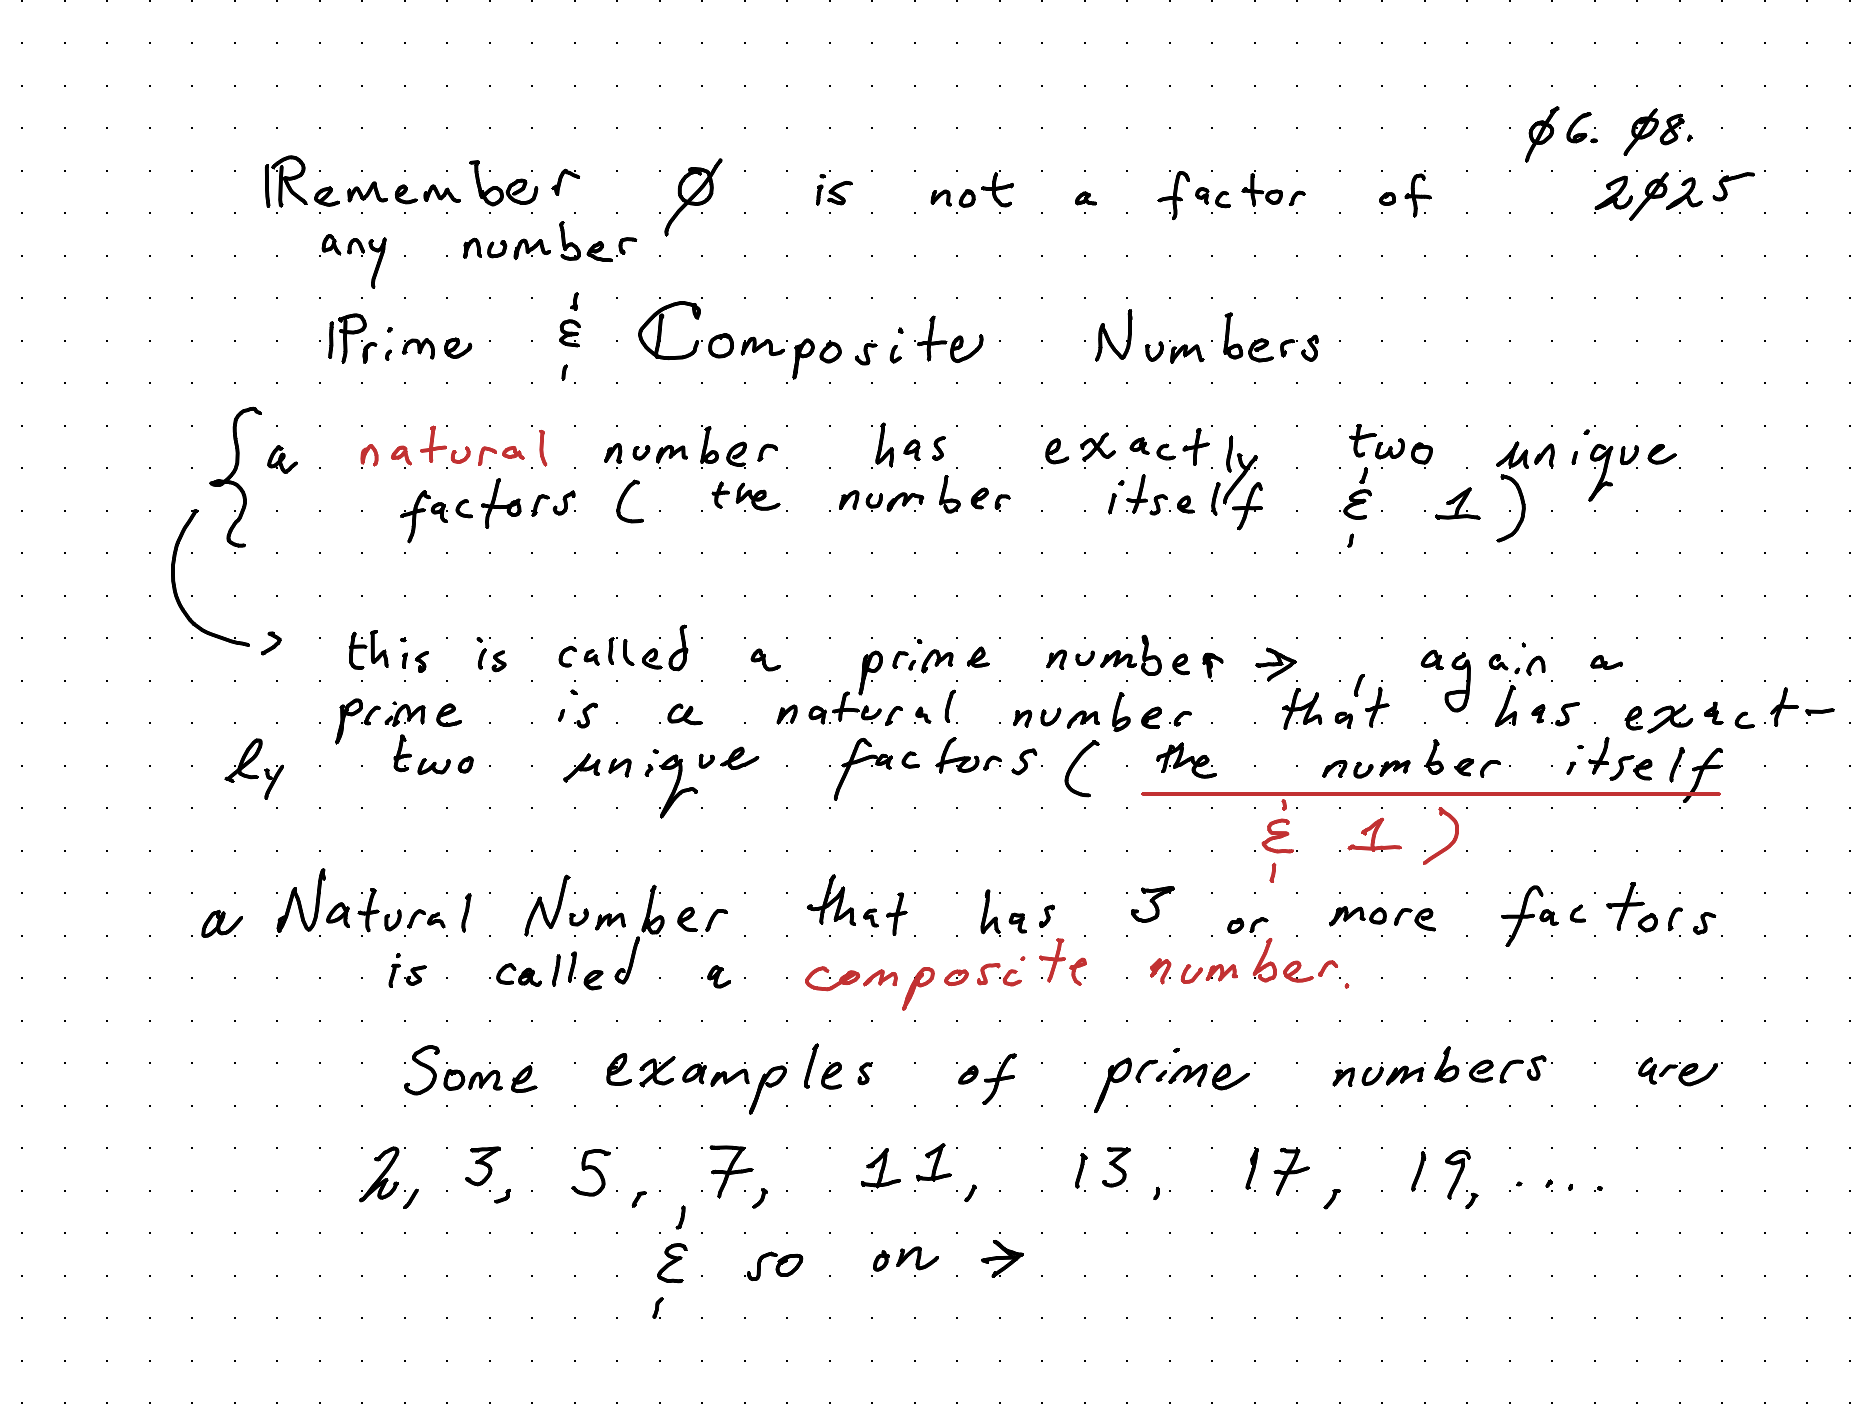 Ø6. Ø8.
2Ø25
Remember Ø is not a factor of
any number
Prime & Composite Numbers
{ a natural number has exactly two unique
factors ( the number itself & 1 )
this is called a prime number → again a
prime is a natural number that has exact-
ly two unique factors ( the number itself
& 1 )
a Natural Number that has 3 or more factors
is called a composite number.
Some examples of prime numbers are
2, 3, 5, 7, 11, 13, 17, 19, ....
& so on →